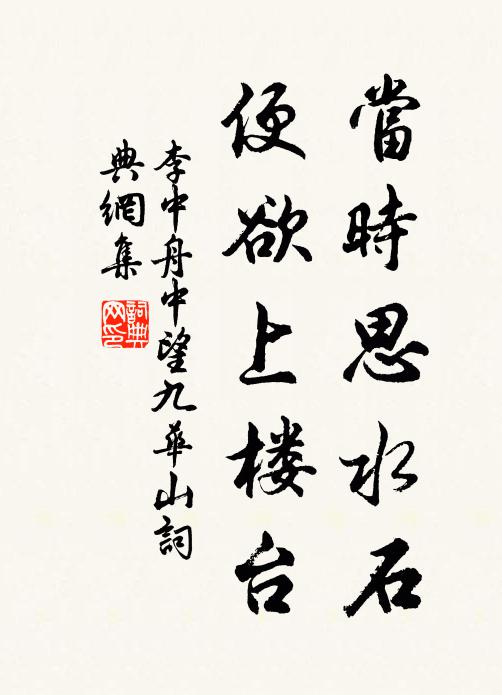 當時思水石
便欲上楼台
李中舟中望九華山詞
典網集
詞典網印